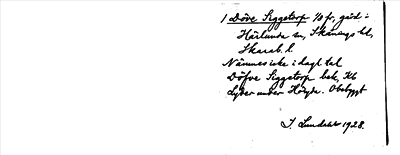 1 Döve Siggetorp 1/8 fr, gård i
Härlunda sn, Skånings hd,
Skarab. l.
Nämnes icke i dagl tal
Döfve Siggetorp bek, Kb
Lyder under Höjda. Obebyggt
J. Lundahl 1928.